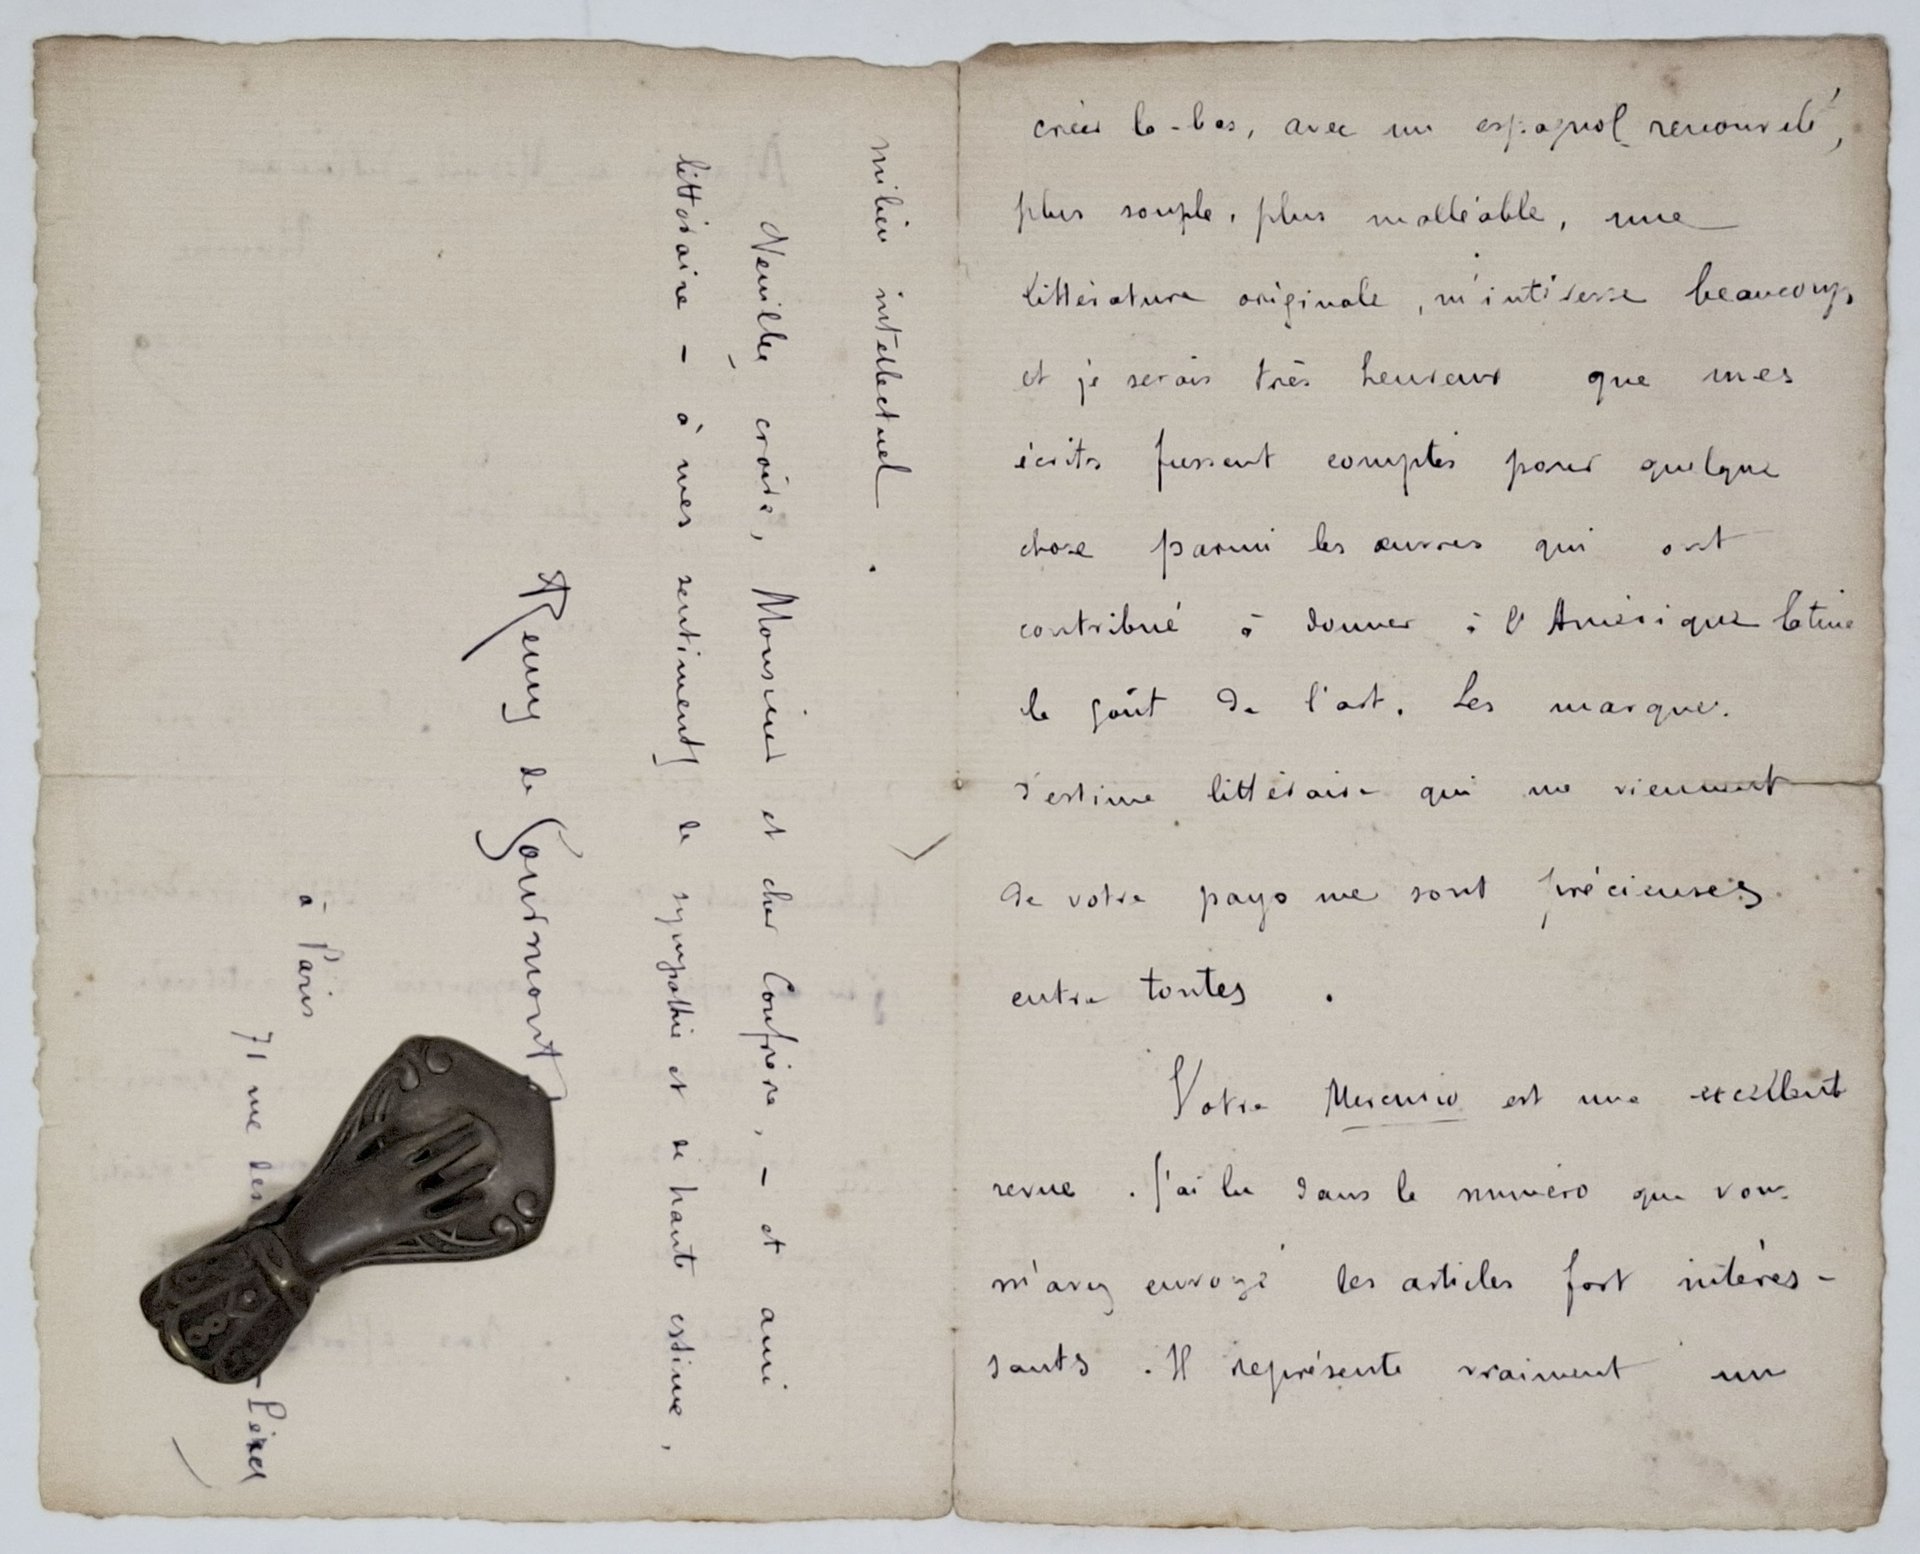 créer là-bas, avec un espagnol renouvelé,
plus souple, plus malléable, une
littérature originale, m'intéresse beaucoup
et je serais très heureux que mes
écrits fussent comptés pour quelque
chose parmi les œuvres qui ont
contribué à donner à l'Amérique latine
le goût de l'art. Les marques
d'estime littéraire qui me viennent
de votre pays me sont précieuses
entre toutes.
Votre Mercurio est une excellente
revue. J'ai lu dans le numéro que vous
m'avez envoyé des articles fort intéres-
sants. Il représente vraiment un
milieu intellectuel.
Veuillez croire, Monsieur et cher Confrère, – et ami
littéraire – à mes sentiments de sympathie et de haute estime,
Remy de Gourmont
à Paris
71 rue des - Pères